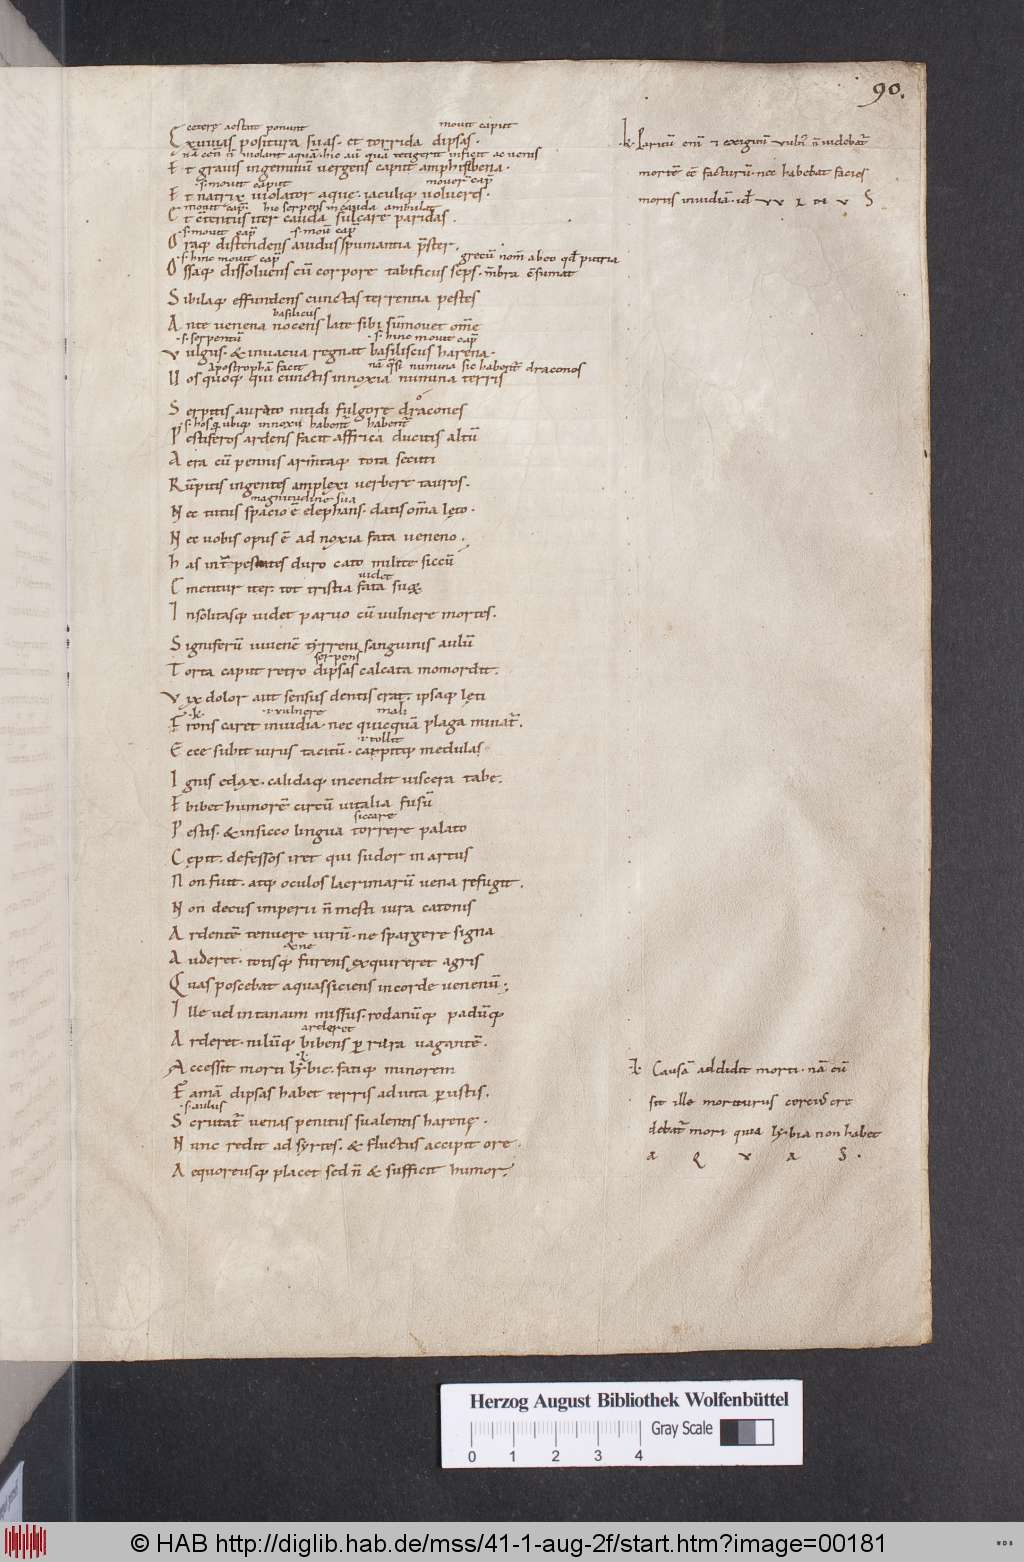 90.
cetere aestate ponunt mouit caput
Exuuias positura suas. et torrida dipsas.
Et grauis ingeminum uergens caput amphisibena.
s. mouit caput mouer cap̅
Et natrix uiolator aque. iaculiq; uolucres.
mouit cap̅. hic serpens in cauda ambulat
Et c̅tentus iter cauda sulcare paridas.
s. mouit cap̅ s. mou& cap̅
Oraq; distendens auidus spumantia p̅ster.
s. hinc mouit cap̅ grecu̅ nom̅ abeo qđ putria
Ossaq; dissoluens cu̅ corpore tabificus seps. m̅bra c̅sumat
Sibilaq; effundens cunctas terrentia pestes
basilicus
Ante uenena nocens late sibi su̅mouet om̅e
s. serpentu̅ s. hinc mouit cap̅
Vulgus. & inuacua regnat basiliscus harena.
apostropha̅ facit na̅ q̅si numina sic habent̅ dracones
Uos quoq; qui cunctis innoxia numina terris
Serpitis aurato nitidi fulgore dracones
s. hos q ubiq; innoxii habent̅ habent̅
Pestiferos ardens facit affrica ducitis altu̅
Aera cu̅ pennis arm̅taq; tota secuti
Ru̅pitis ingentes amplexi uerbere tauros.
magnitudine sua
Nec tutus spacio e̅ elephans. datis om̅a lęto.
Nec uobis opus e̅ ad noxia fata ueneno.
Has int̅ pestates duro cato milite siccu̅
uidet
Emetitur iter. tot tristia fata suoꝝ
Insolitasq; uidet paruo cu̅ uulnere mortes.
Signiferu̅ iuuene̅ tyrreni sanguinis aulu̅
serpens
Torta caput retro dipsas calcata momordit.
Vix dolor aut sensus dentis erat. ipsaq; lęti
ł uulnere mali
Frons caret inuidia. nec quicqua̅ plaga minat̅.
ł tollit
Ecce subit uirus tacitu̅. carpitq; medulas
Ignis edax. calidaq; incendit uiscera tabe.
Ebibet humore̅ circu̅ uitalia fusu̅
siccare
Pestis. & insicco lingua torrere palato
Cępit. defessos iret qui sudor in artus
Non fuit. atq; oculos lacrimaru̅ uena refugit.
Non decus imperii n̅ mesti iura catonis
Ardente̅ tenuere uiru̅. ne spargere signa
Auderet. totisq; furens exquireret agris
Quas poscebat aquas siciens in corde uenenu̅;
Ille uel in tanaim missus. rodanu̅q; padu̅q;
arderet
Arderet. nilu̅q; bibens p rura uagante̅.
Accessit morti lẏbie. fatiq; minorem
Fama̅ dipsas habet terris adiuta p ustis.
s. aulus
Scrutat̅ uenas penitus sualentis harenę.
Nunc redit ad syrtes. & fluctus accipit ore.
Aequoreusq; placet sed n̅ & sufficit humor;
Paruu̅ eni̅ ł exiguu̅ uuln̅ n̅ uidebat̅
morte̅ ee̅ facturu̅. nec habebat facies
mortis inuidia̅. id̅ VV L N V S
Causa̅ addidit morti. na̅ cu̅
sit ille moriturus
debat̅ mori quia lẏbia non habet
A Q V A S.
Herzog August Bibliothek Wolfenbüttel
Gray Scale
0 1 2 3 4
© HAB http://diglib.hab.de/mss/41-1-aug-2f/start.htm?image=00181